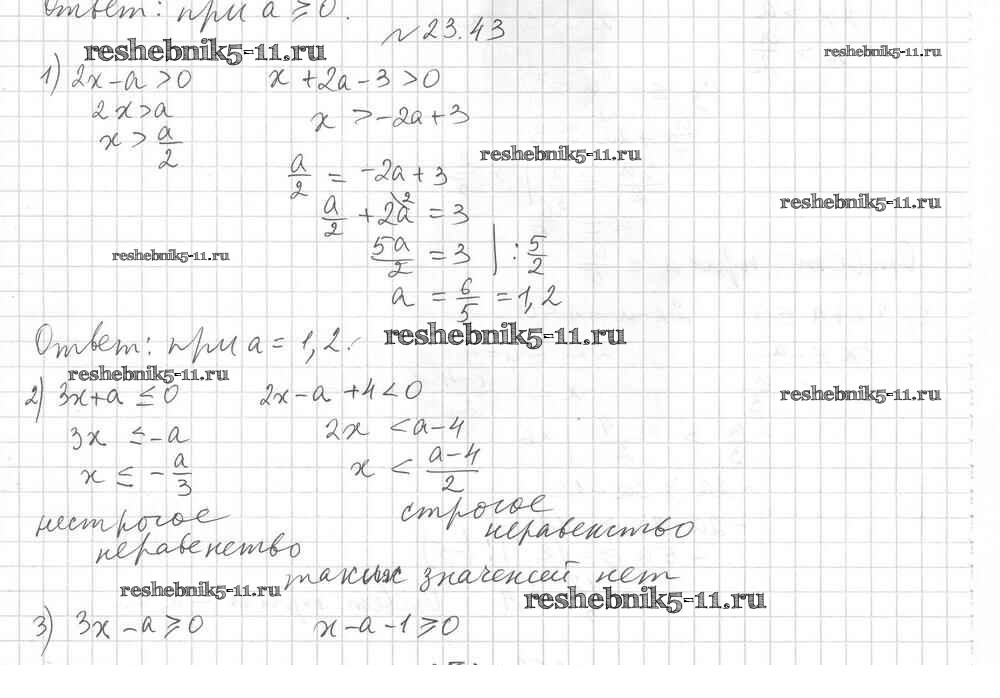 Ответ: при a ⩾ 0.
№ 23.43
reshebnik5-11.ru reshebnik5-11.ru
1) 2x-a>0 x+2a-3>0
2x>a x>-2a+3
x>a/2
reshebnik5-11.ru
a/2 = -2a+3
reshebnik5-11.ru
a/2 + 2a\2 = 3
reshebnik5-11.ru 5a/2 = 3 | : 5/2
a = 6/5 = 1,2
Ответ: при a = 1,2. reshebnik5-11.ru
reshebnik5-11.ru
2) 3x+a ≤ 0 2x-a+4<0 reshebnik5-11.ru
3x ≤ -a 2x < a-4
x ≤ -a/3 x < (a-4)/2
нестрогое строгое
неравенство неравенство
таких значений нет
reshebnik5-11.ru reshebnik5-11.ru
3) 3x-a⩾0 x-a-1⩾0